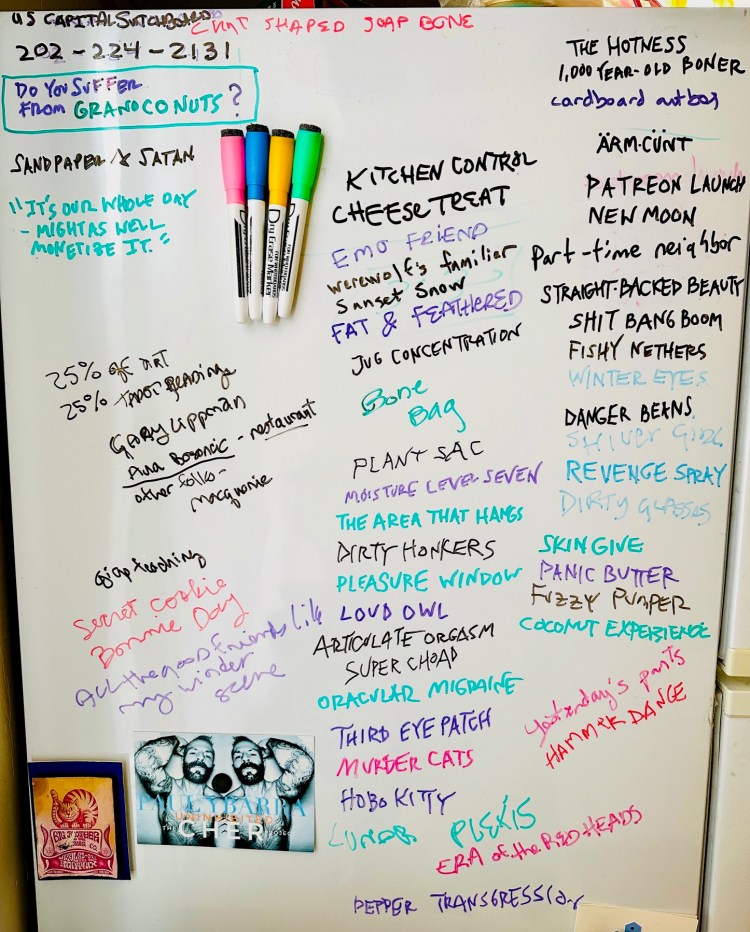 US CAPITAL SWITCHBOARD
202-224-2131
SHAPED SOAP BONE
DO YOU SUFFER
FROM GRANDCONUTS?
SANDPAPER & SATAN
"IT'S OUR WHOLE DAY
- MIGHT AS WELL
MONETIZE IT."
Dry Erase Marker
25% OF ART
25% TAROT READINGS
GARY LIPPMAN
- restaurant
other folks -
macquarie
teaching
Secret Cookie
Bonnie Day
All the good friends like
my winter
scene
KITCHEN CONTROL
CHEESE TREAT
EMO FRIEND
werewolf's familiar
Sunset Snow
FAT & FEATHERED
JUG CONCENTRATION
Bone
Bag
PLANT SAC
MOISTURE LEVEL SEVEN
THE AREA THAT HANGS
DIRTY HONKERS
PLEASURE WINDOW
LOUD OWL
ARTICULATE ORGASM
SUPER CHOAD
ORACULAR MIGRAINE
THIRD EYE PATCH
MURDER CATS
HOBO KITTY
LUNAR PLEXIS
ERA of the RED HEADS
PEPPER TRANSGRESSION
THE HOTNESS
1,000 YEAR-OLD BONER
cardboard outbox
ÄRM-CÜNT
PATREON LAUNCH
NEW MOON
Part-time neighbor
STRAIGHT-BACKED BEAUTY
SHIT BANG BOOM
FISHY NETHERS
WINTER EYES
DANGER BEANS
REVENGE SPRAY
DIRTY GLASSES
SKIN GIVE
PANIC BUTTER
FUZZY PUMPER
COCONUT EXPERIENCE
Yesterday's pants
HAMMER DANCE
PAULYBARDA
UNINHIBITED
CHER